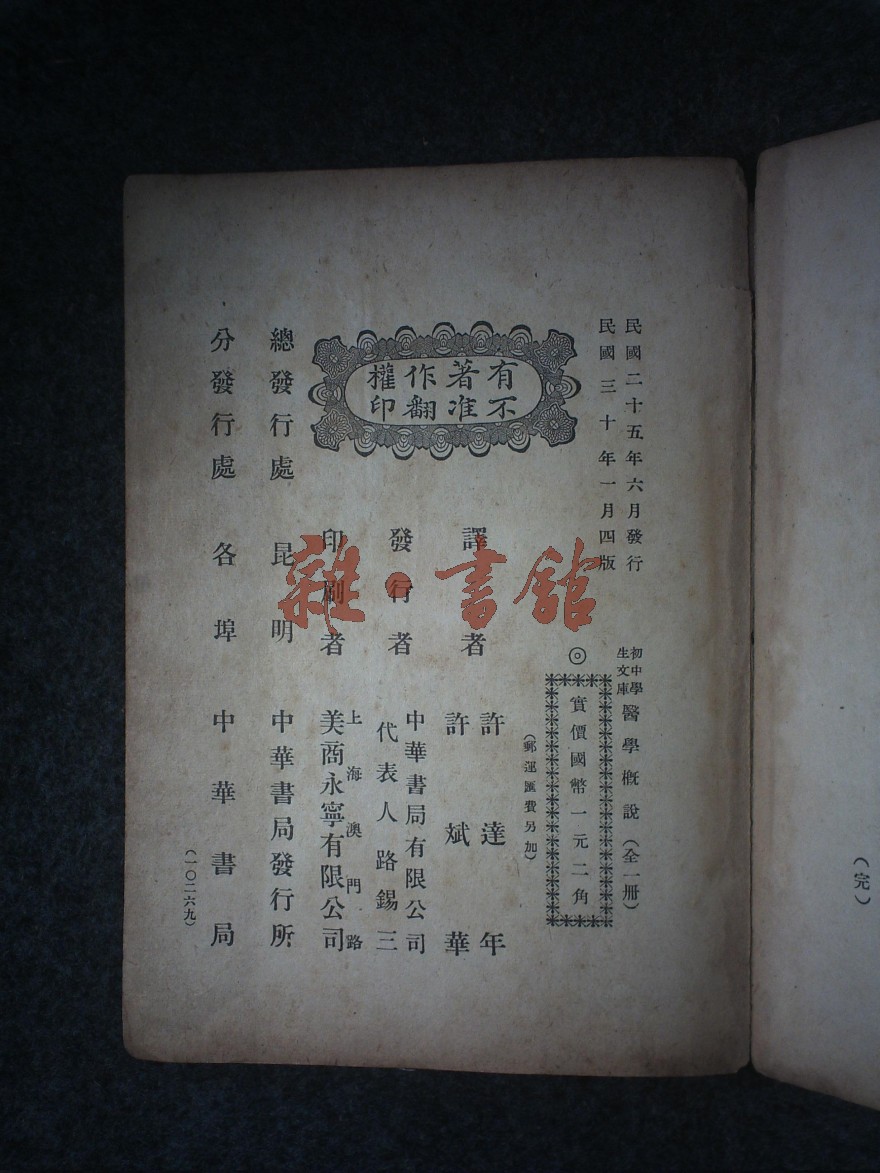 民國二十五年六月發行
民國三十年一月四版
初中學
生文庫
醫學概說（全一册）
◎
實價國幣一元二角
（郵運匯費另加）
有著作權
不准翻印
譯者
許達年
許斌華
發行者
中華書局有限公司
代表人路錫三
印刷者
上海澳門路
美商永寧有限公司
總發行處 昆明 中華書局發行所
分發行處 各埠 中華書局
（一〇二六九）
（完）
雜·書館